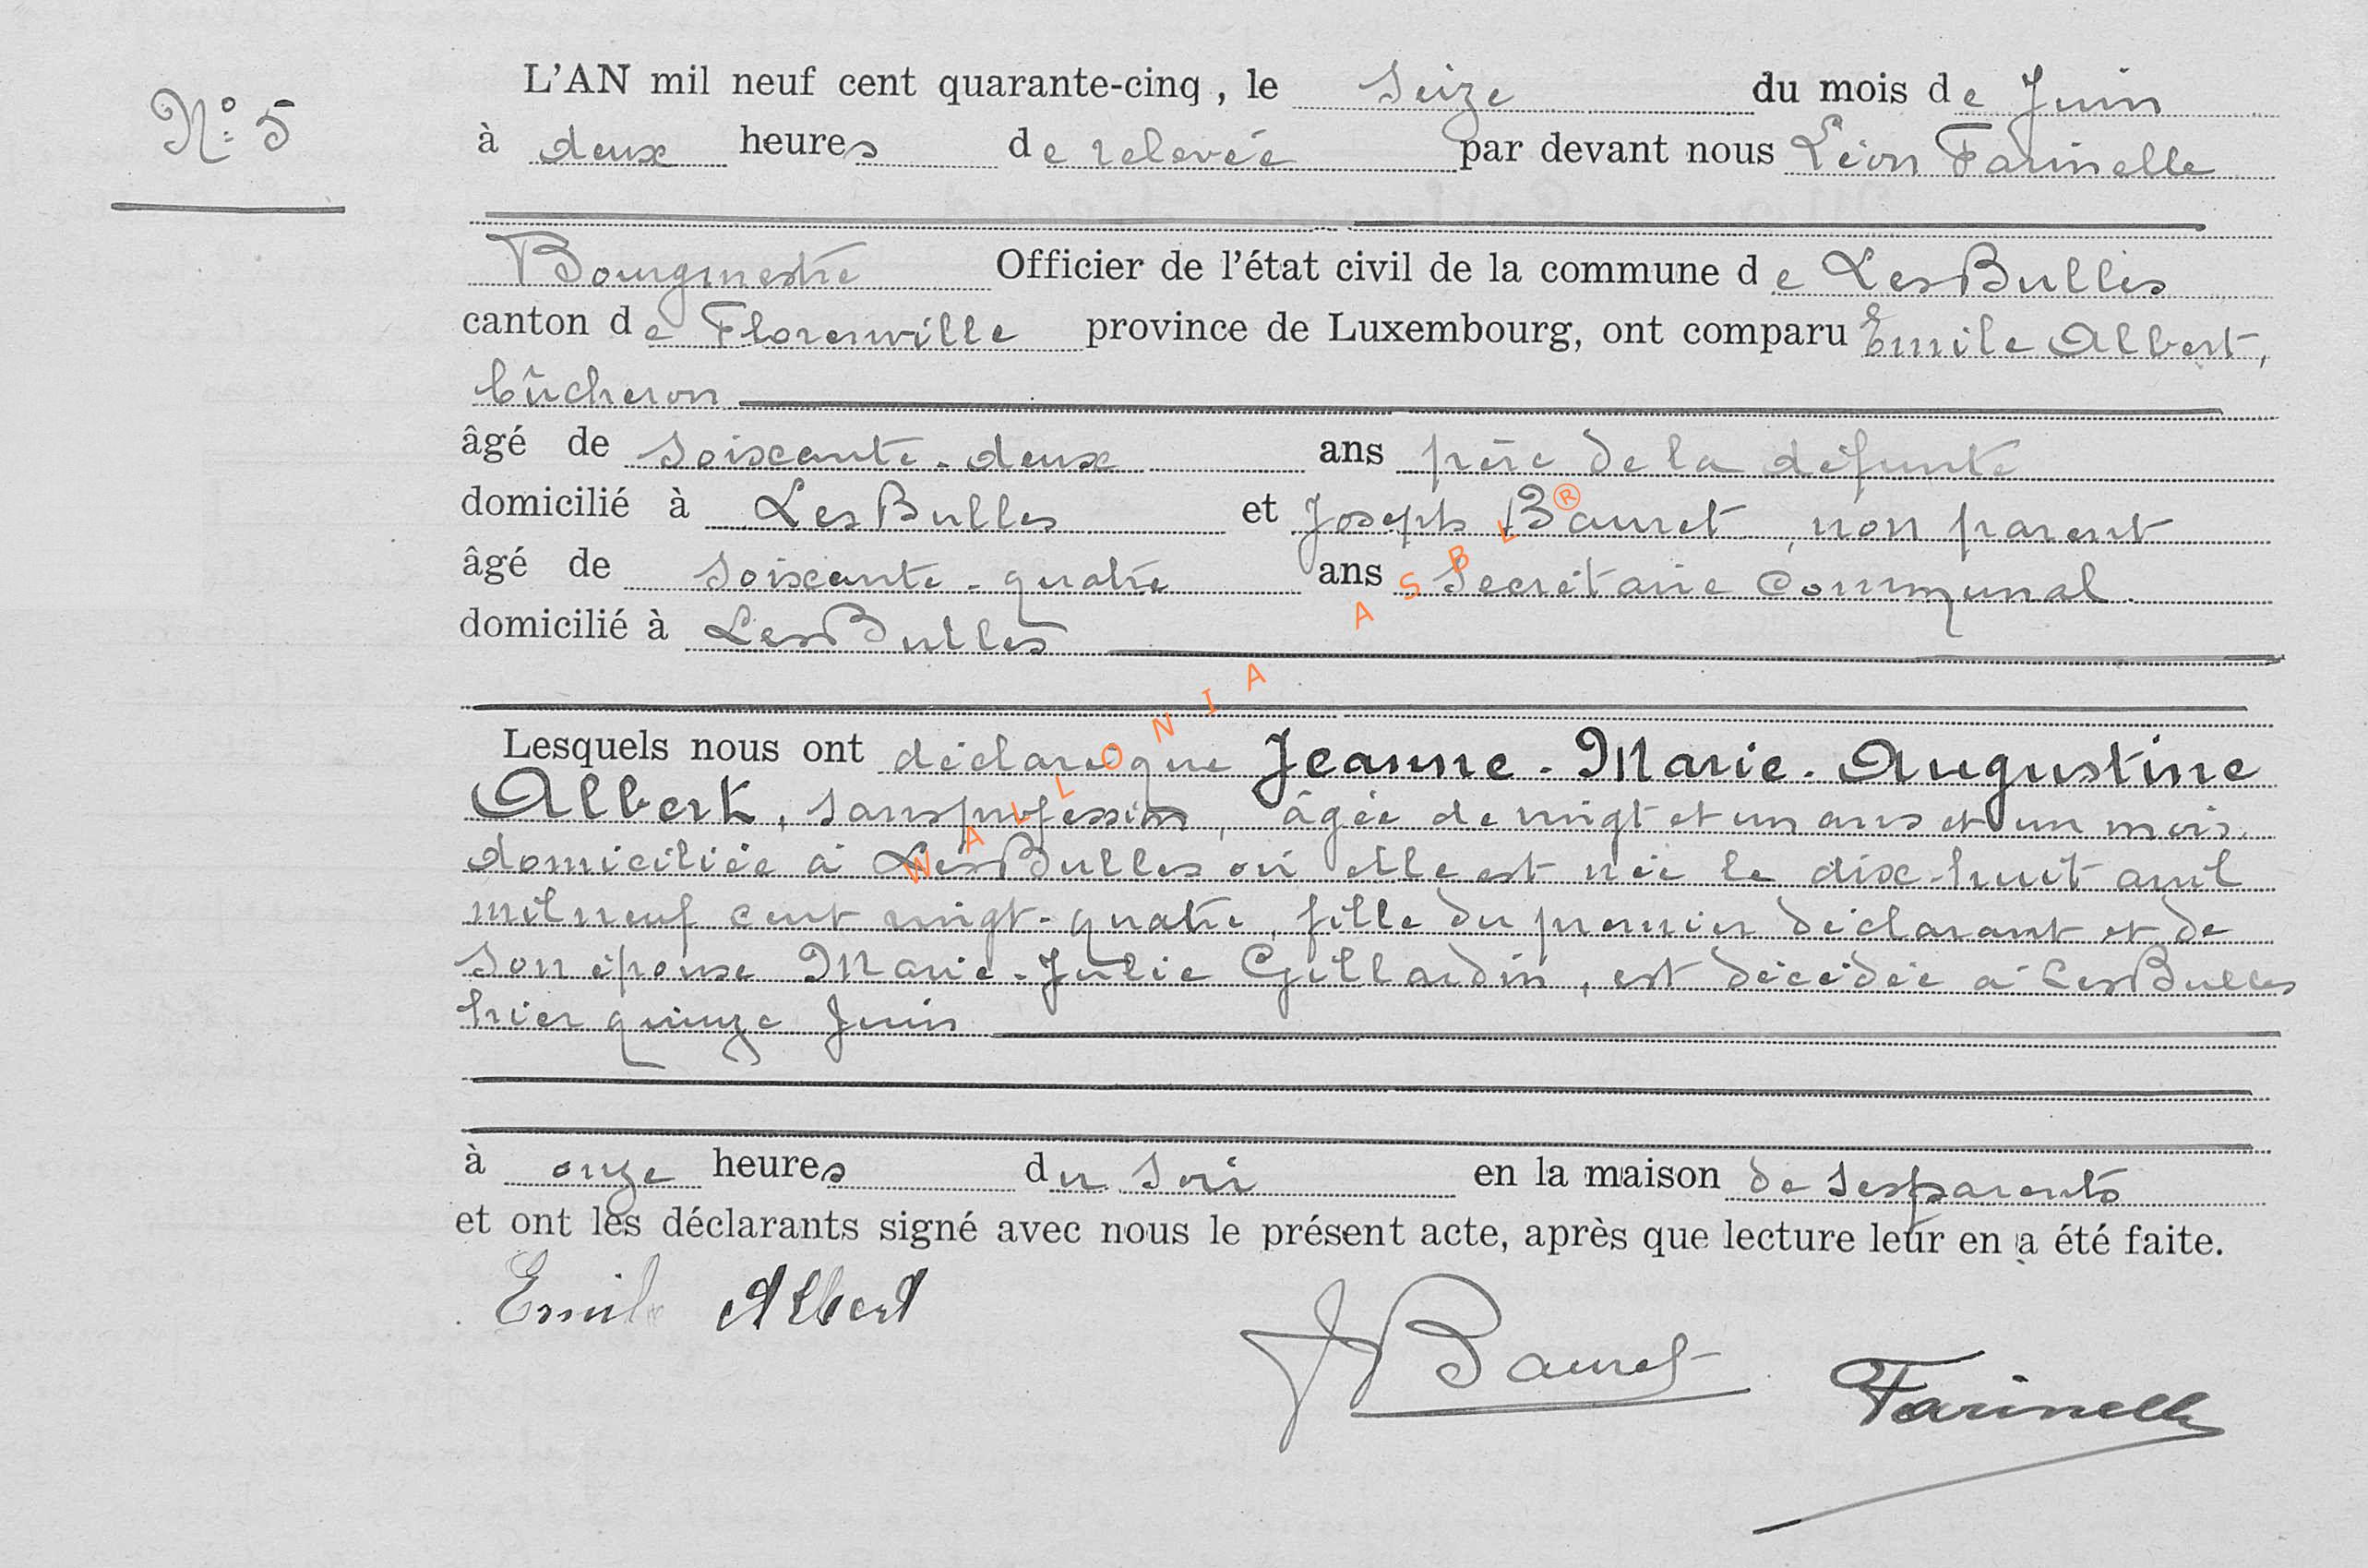 N° 5
L'AN mil neuf cent quarante-cinq, le seize du mois de Juin
à deux heures de relevée par devant nous Léon Farinelle
Bourgmestre Officier de l'état civil de la commune de Les Bulles
canton de Florenville province de Luxembourg, ont comparu Emile Albert,
bûcheron
âgé de soixante-deux ans père de la défunte
domicilié à Les Bulles et Joseph Bauret, non parent
âgé de soixante-quatre ans Secrétaire Communal.
domicilié à Les Bulles
Lesquels nous ont déclaré que Jeanne-Marie-Augustine
Albert, sans profession, âgée de vingt et un ans et un mois
domiciliée à Les Bulles où elle est née le dix-huit avril
mil neuf cent vingt-quatre, fille du premier déclarant et de
son épouse Marie-Julie Gillardin, est décédée à Les Bulles
hier quinze Juin
à onze heures du soir en la maison de ses parents
et ont les déclarants signé avec nous le présent acte, après que lecture leur en a été faite.
Emile Albert
J Bauret
Farinelle
WALLONIA ASBL ®